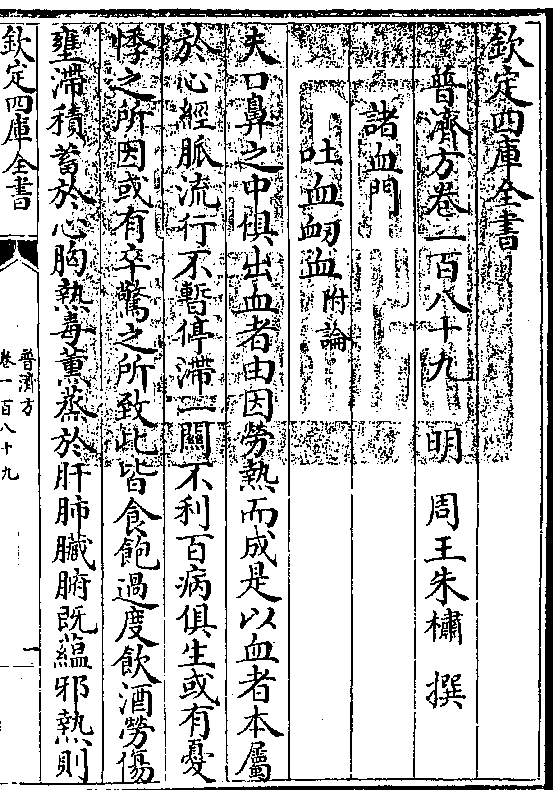 欽定四庫全書
普濟方卷一百八十九　明　周王朱橚　撰
諸血門
吐血衂血附論
夫口鼻之中俱出血者由因勞熱而成是以血者本屬
於心經脈流行不暫停滯一關不利百病俱生或有憂
悸之所因或有卒驚之所致此皆食飽過度飲酒勞傷
壅滯積蓄於心胸熱毒薰蒸於肝肺臟腑既蘊邪熱則
欽定四庫全書
普濟方
卷一百八十九
一